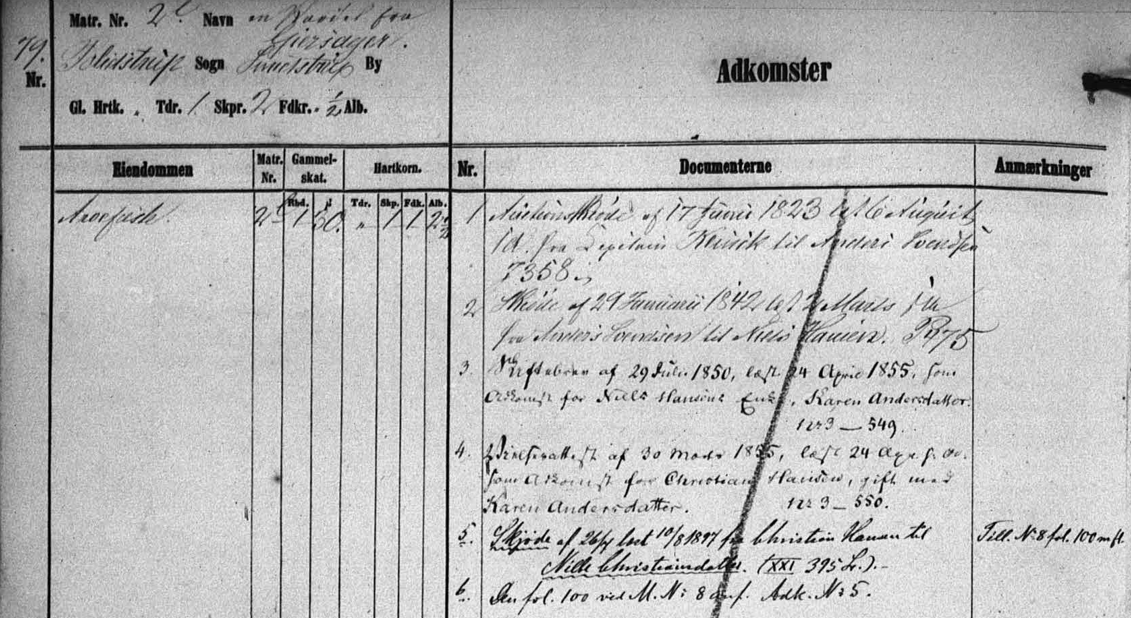 Matr. Nr. 2 Navn en Parcel fra
79. Ejersager.
Nr. Sogn By
Gl. Hrtk. „ Tdr. 1 Skpr. 2 Fdkr. ½ Alb.
Adkomster
Eiendommen
Matr. Nr.
Gammelskat.
Hartkorn.
Nr.
Documenterne
Anmærkninger
Rbd. ß Tdr. Skp. Fdk. Alb.
Arvefæste 2 1 50. „ 1 1 2½
1 Auctionsskiøde af 17 Junii 1823 læst 6 August
fra Capitain til Anders Svendsen
7358
2 Skiøde af 29 Januarii 1842 læst 2 Marts
fra Anders Svendsen til Niels Hansen.
3. Skiftebrev af 29 Juli 1850, læst 24 April 1855, som
Adkomst for Niels Hansens Enke, Karen Andersdatter.
Nr 3 — 549.
4. Vielsesattest af 30 Marts 1855, læst 24 Apr.
som Adkomst for Christian Hansen, gift med
Karen Andersdatter. Nr 3 — 550.
5. Skjøde af læst 10/8 1897 fra Christian Hansen til
Nille Christiansdatter. (XXI 395 Lr.). —
Till. № 8 fol. 100 m fl.
6. Den fol. 100 ved M. № 8 anf. Adk. № 5.